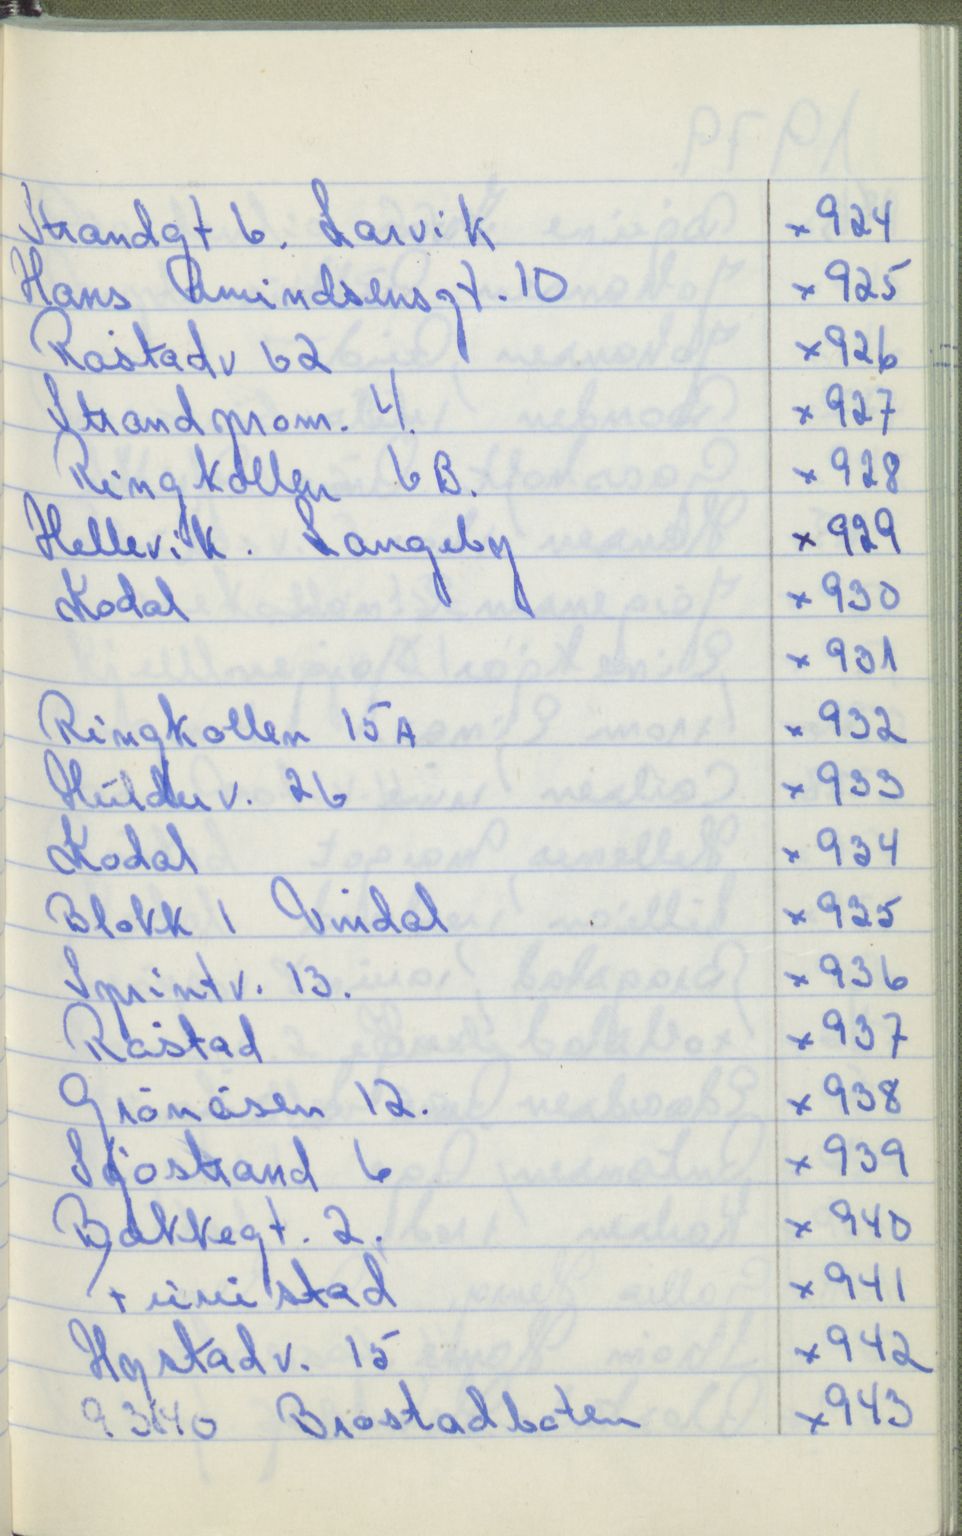 Strandgt 6. Larvik x 924
Hans Amindsensgt. 10 x 925
Råstadv 62 x 926
Strandprom. 4. x 927
Ringkollen 6B. x 928
Hellevik. Langeby x 929
Kodal x 930
x 931
Ringkollen 15A x 932
v. 26 x 933
Kodal x 934
Blokk 1 x 935
Sprintv. 13. x 936
Råstad x 937
Grönåsen 12. x 938
Sjöstrand 6 x 939
Bjakkegt. 2. x 940
x 941
Hystadv. 15 x 942
9340 Brøstadboten x 943